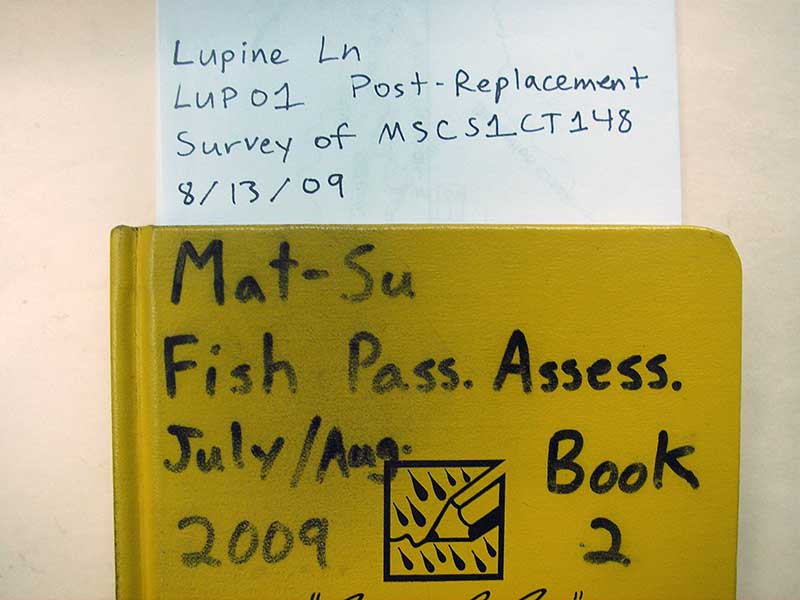 Lupine Ln
LUP01 Post-Replacement
Survey of MSCS1CT148
8/13/09
Mat-Su
Fish Pass. Assess.
July/Aug. Book
2009 2